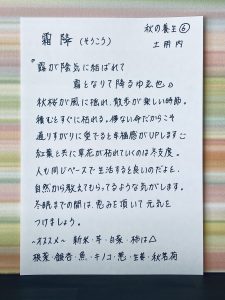 秋の養生⑥
土用内
霜降（そうこう）
『露が陰気に結ばれて
霜となりて降るゆゑ也』
秋桜が風に揺れ、散歩が楽しい時節。
積むとすぐに枯れる。儚ない命だからこそ
通りすがりに愛でると幸福感がUPします
紅葉と共に草花が枯れていくのは冬支度。
人も同じペースで生活すると良いのだよと、
自然から教えてもらってるような気がします。
冬眠までの間は、恵みを頂いて元気を
つけましょう。
〜オススメ〜 新米・芋・白菜・柿は△
根菜・銀杏・魚・キノコ・葱・生姜・秋茗荷